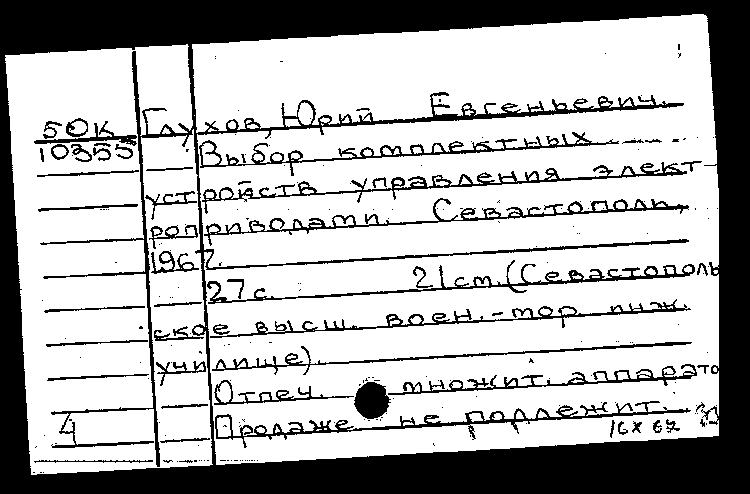 50К Глухов, Юрий Евгеньевич.
10355 Выбор комплектных
устройств управления элект-
роприводами. Севастополь,
1967.
27 с. 21 см. (Севастополь-
ское высш. воен.-мор. инж.
училище).
Отпеч. множит. аппарато
4 Продаже не подлежит.
16 X 67